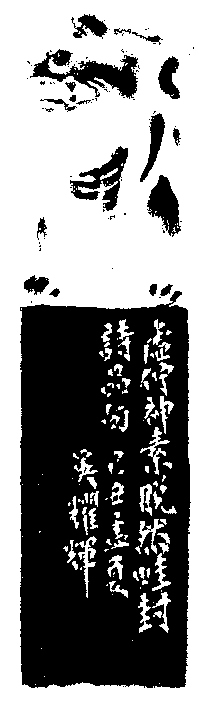 虛佇神素脫然畦封
詩品句 己丑孟夏
吳耀輝